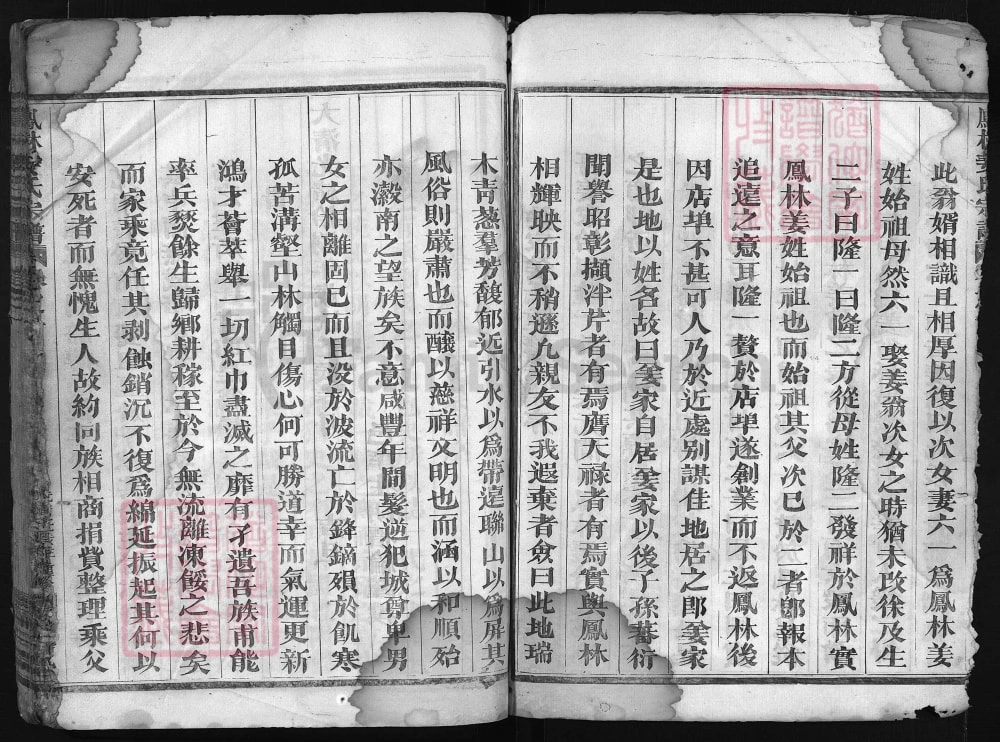 此翁婿相識且相厚因復以次女妻六一爲鳳林姜
姓始祖母然六一娶姜翁次女之時猶未改徐及生
二子曰隆一曰隆二方從母姓隆二發祥於鳳林實
鳳林姜姓始祖也而始祖其父次巳於二者郎報本
追遠之意耳隆一贅於店埠遂創業而不返鳳林後
因店埠不甚可人乃於近處別謀佳地居之即姜家
是也地以姓名故曰姜家自居姜家以後子孫蕃衍
聞譽昭彰擷泮芹者有焉膺天祿者有焉實與鳳林
相輝映而不稍遜凡親友不我遐棄者僉曰此地瑞
木青葱羣芳馥郁近引水以爲帶遠聯山以爲屏其
風俗則嚴肅也而釀以慈祥文明也而涵以和順殆
亦瀫南之望族矣不意咸豐年間髮逆犯城尊卑男
女之相離固已而且没於波流亡於鋒鏑殞於飢寒
孤苦溝壑山林觸目傷心何可勝道幸而氣運更新
鴻才薈萃舉一切紅巾盡滅之靡有孑遺吾族甫能
率兵燹餘生歸鄉耕稼至於今無流離凍餒之悲矣
而家乘竟任其剥蝕銷沉不復爲綿延振起其何以
安死者而無愧生人故約同族相商捐貲整理乘父